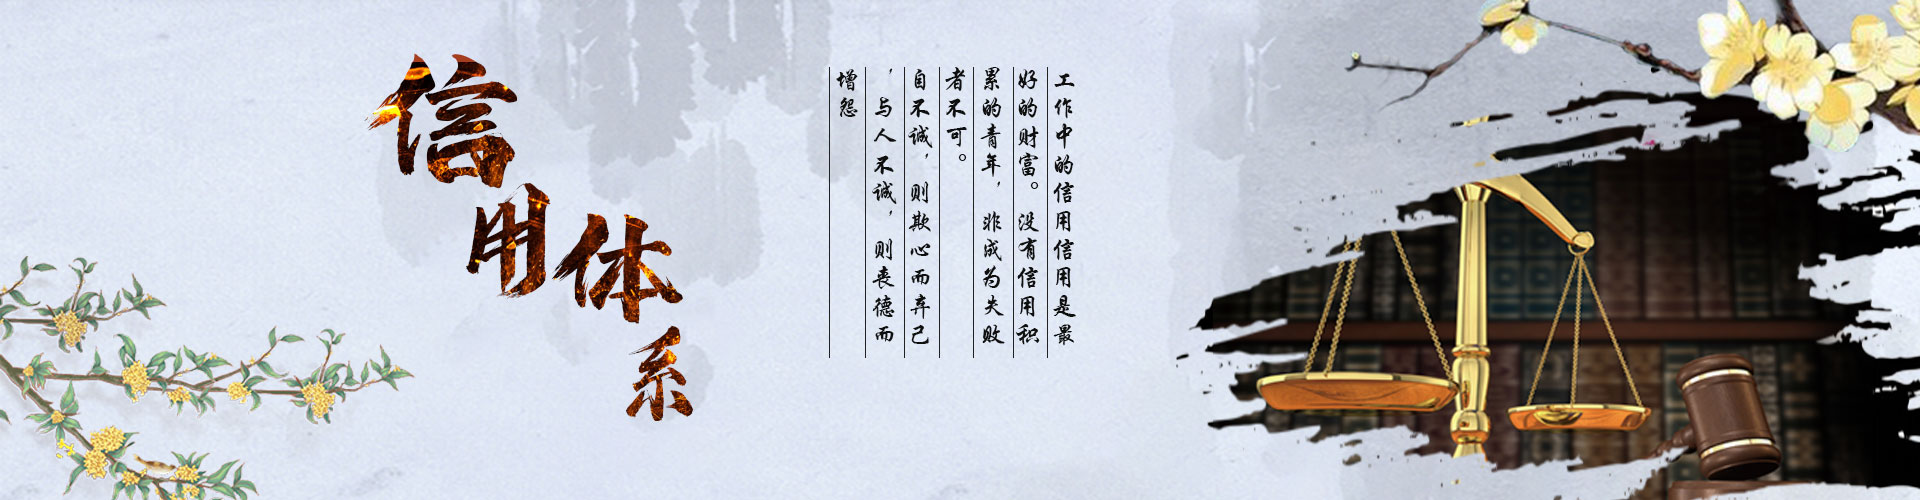 信用体系
工作中的信用信用是最
好的财富。没有信用积
累的青年，非成为失败
者不可。
自不诚，则欺心而弃己
，与人不诚，则丧德而
增怨